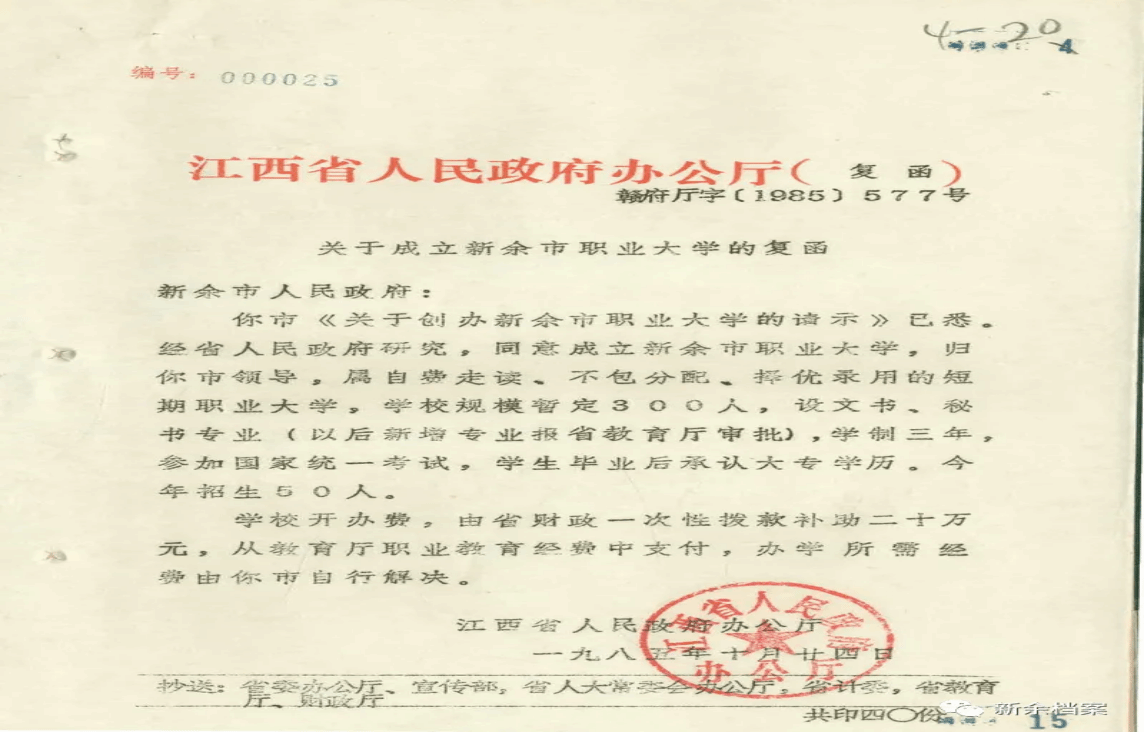 4—20
4
编号：000025
江西省人民政府办公厅（复函）
赣府厅字〔1985〕577号
关于成立新余市职业大学的复函
新余市人民政府：
你市《关于创办新余市职业大学的请示》已悉。
经省人民政府研究，同意成立新余市职业大学，归
你市领导，属自费走读、不包分配、择优录用的短
期职业大学，学校规模暂定300人，设文书、秘
书专业（以后新增专业报省教育厅审批），学制三年，
参加国家统一考试，学生毕业后承认大专学历。今
年招生50人。
学校开办费，由省财政一次性拨款补助二十万
元，从教育厅职业教育经费中支付，办学所需经
费由你市自行解决。
江西省人民政府办公厅
一九八五年十月廿四日
江西省人民政府
办公厅
抄送：省委办公厅、宣传部，省人大常委会办公厅，省计委，省教育
厅、财政厅
共印四〇份
新余档案
15